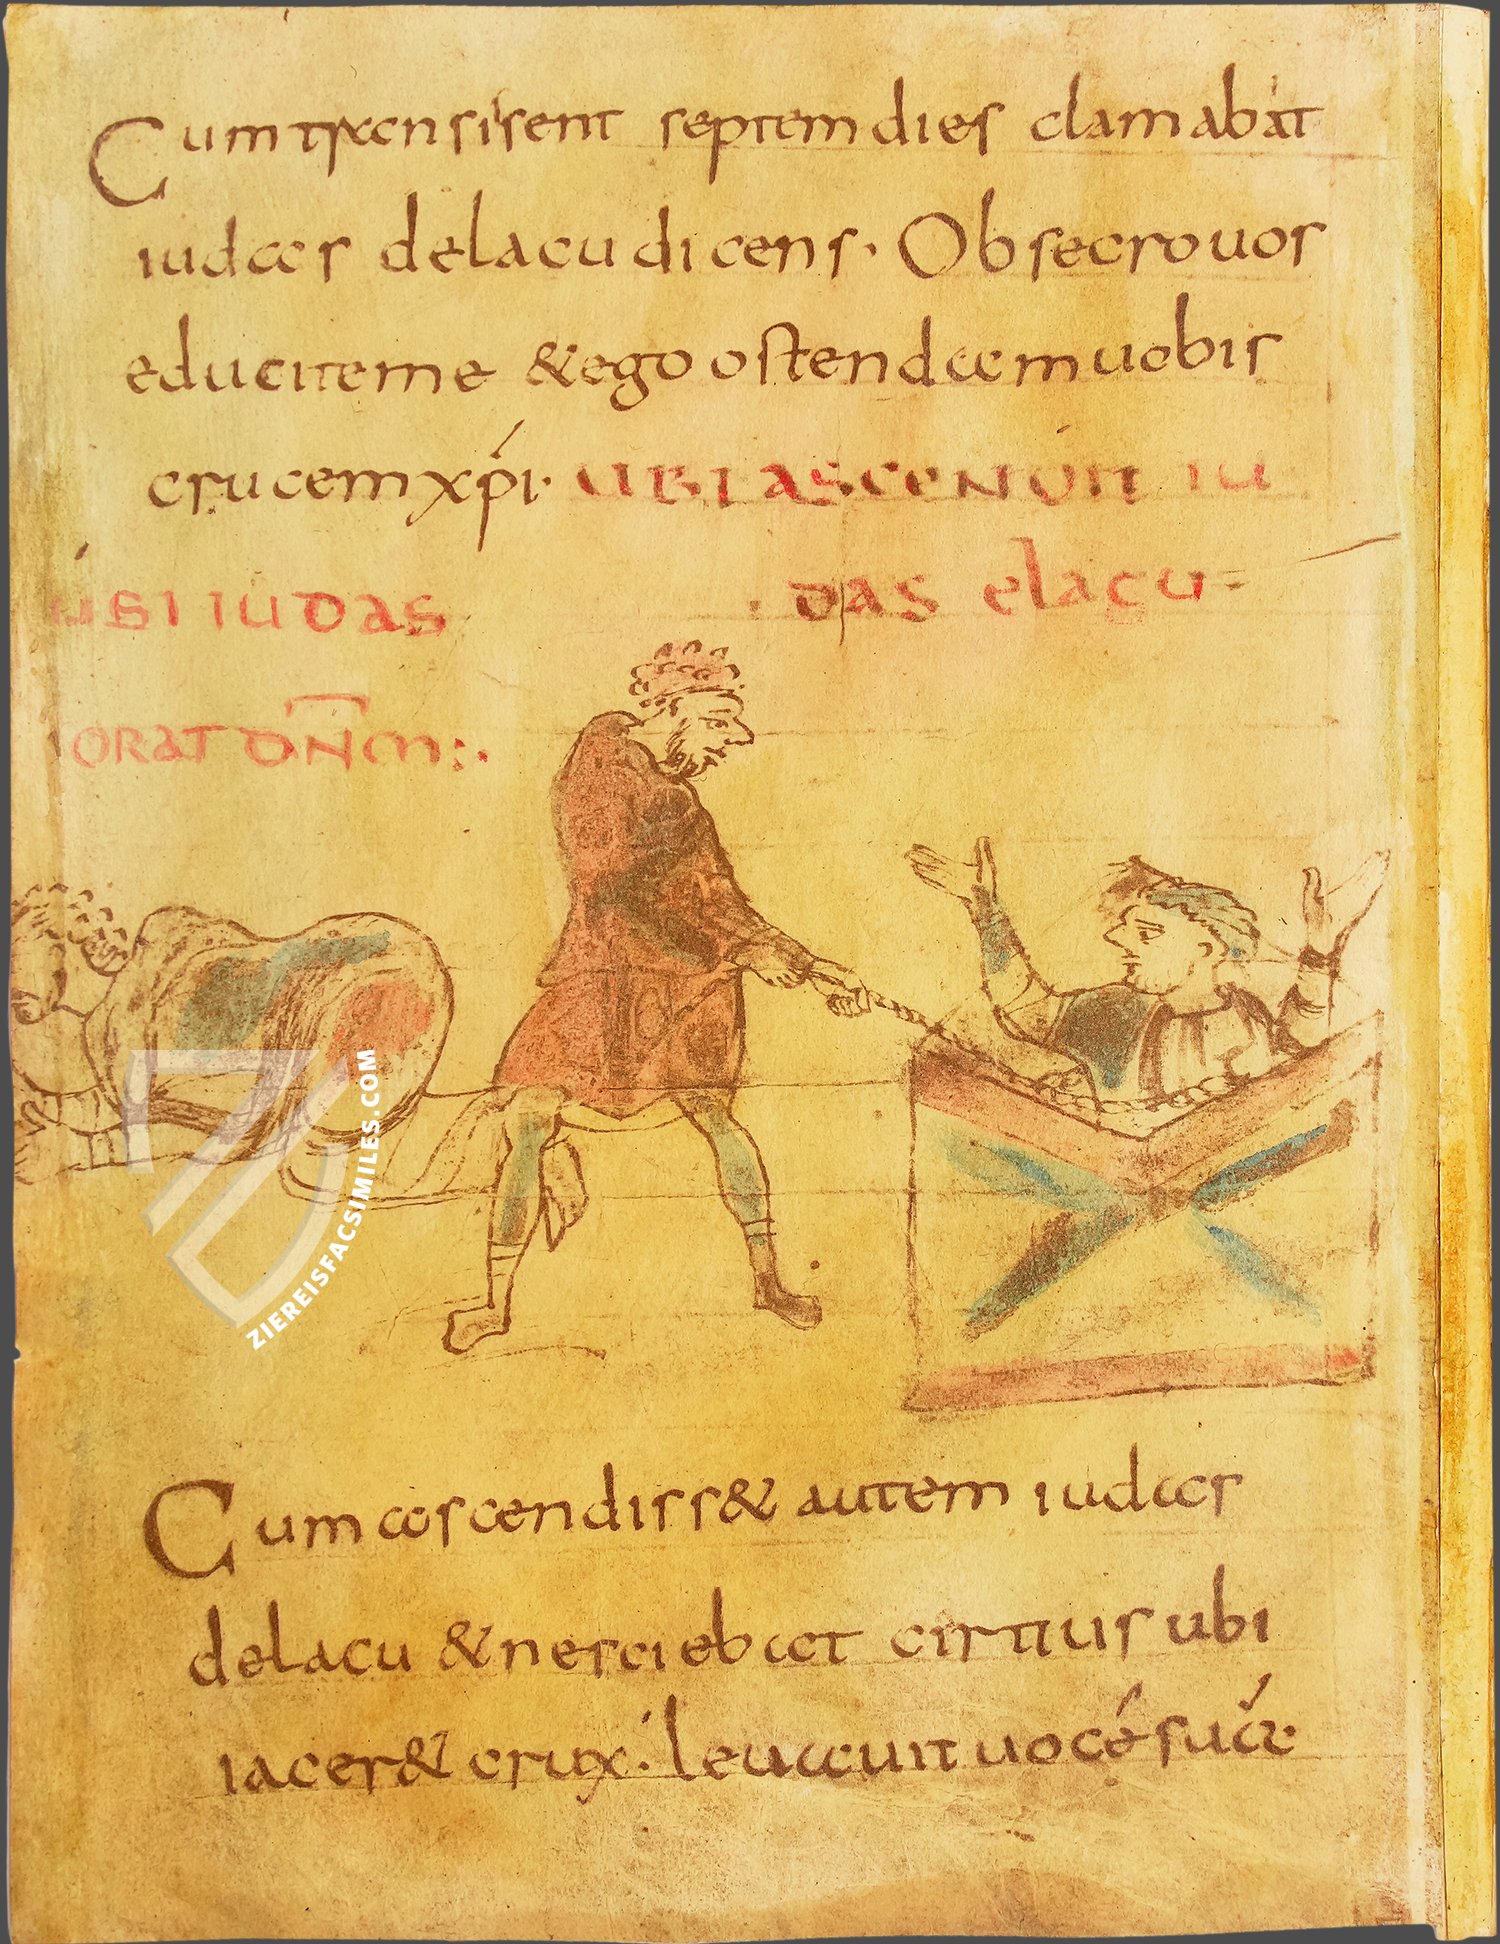 Cum transissent septem dies clamabat
iudas delacu dicens· Obsecro uos
educite me & ego ostendam uobis
crucem xp̄i· UBI ASCENDIT IU
DAS elacu
UBI IUDAS
ORAT DN̄M:·
Cum ascendiss& autem iudas
delacu & nesciebat cirtius ubi
iacer& crux· leuauit uocē suā·
ZIEREISFACSIMILES.COM